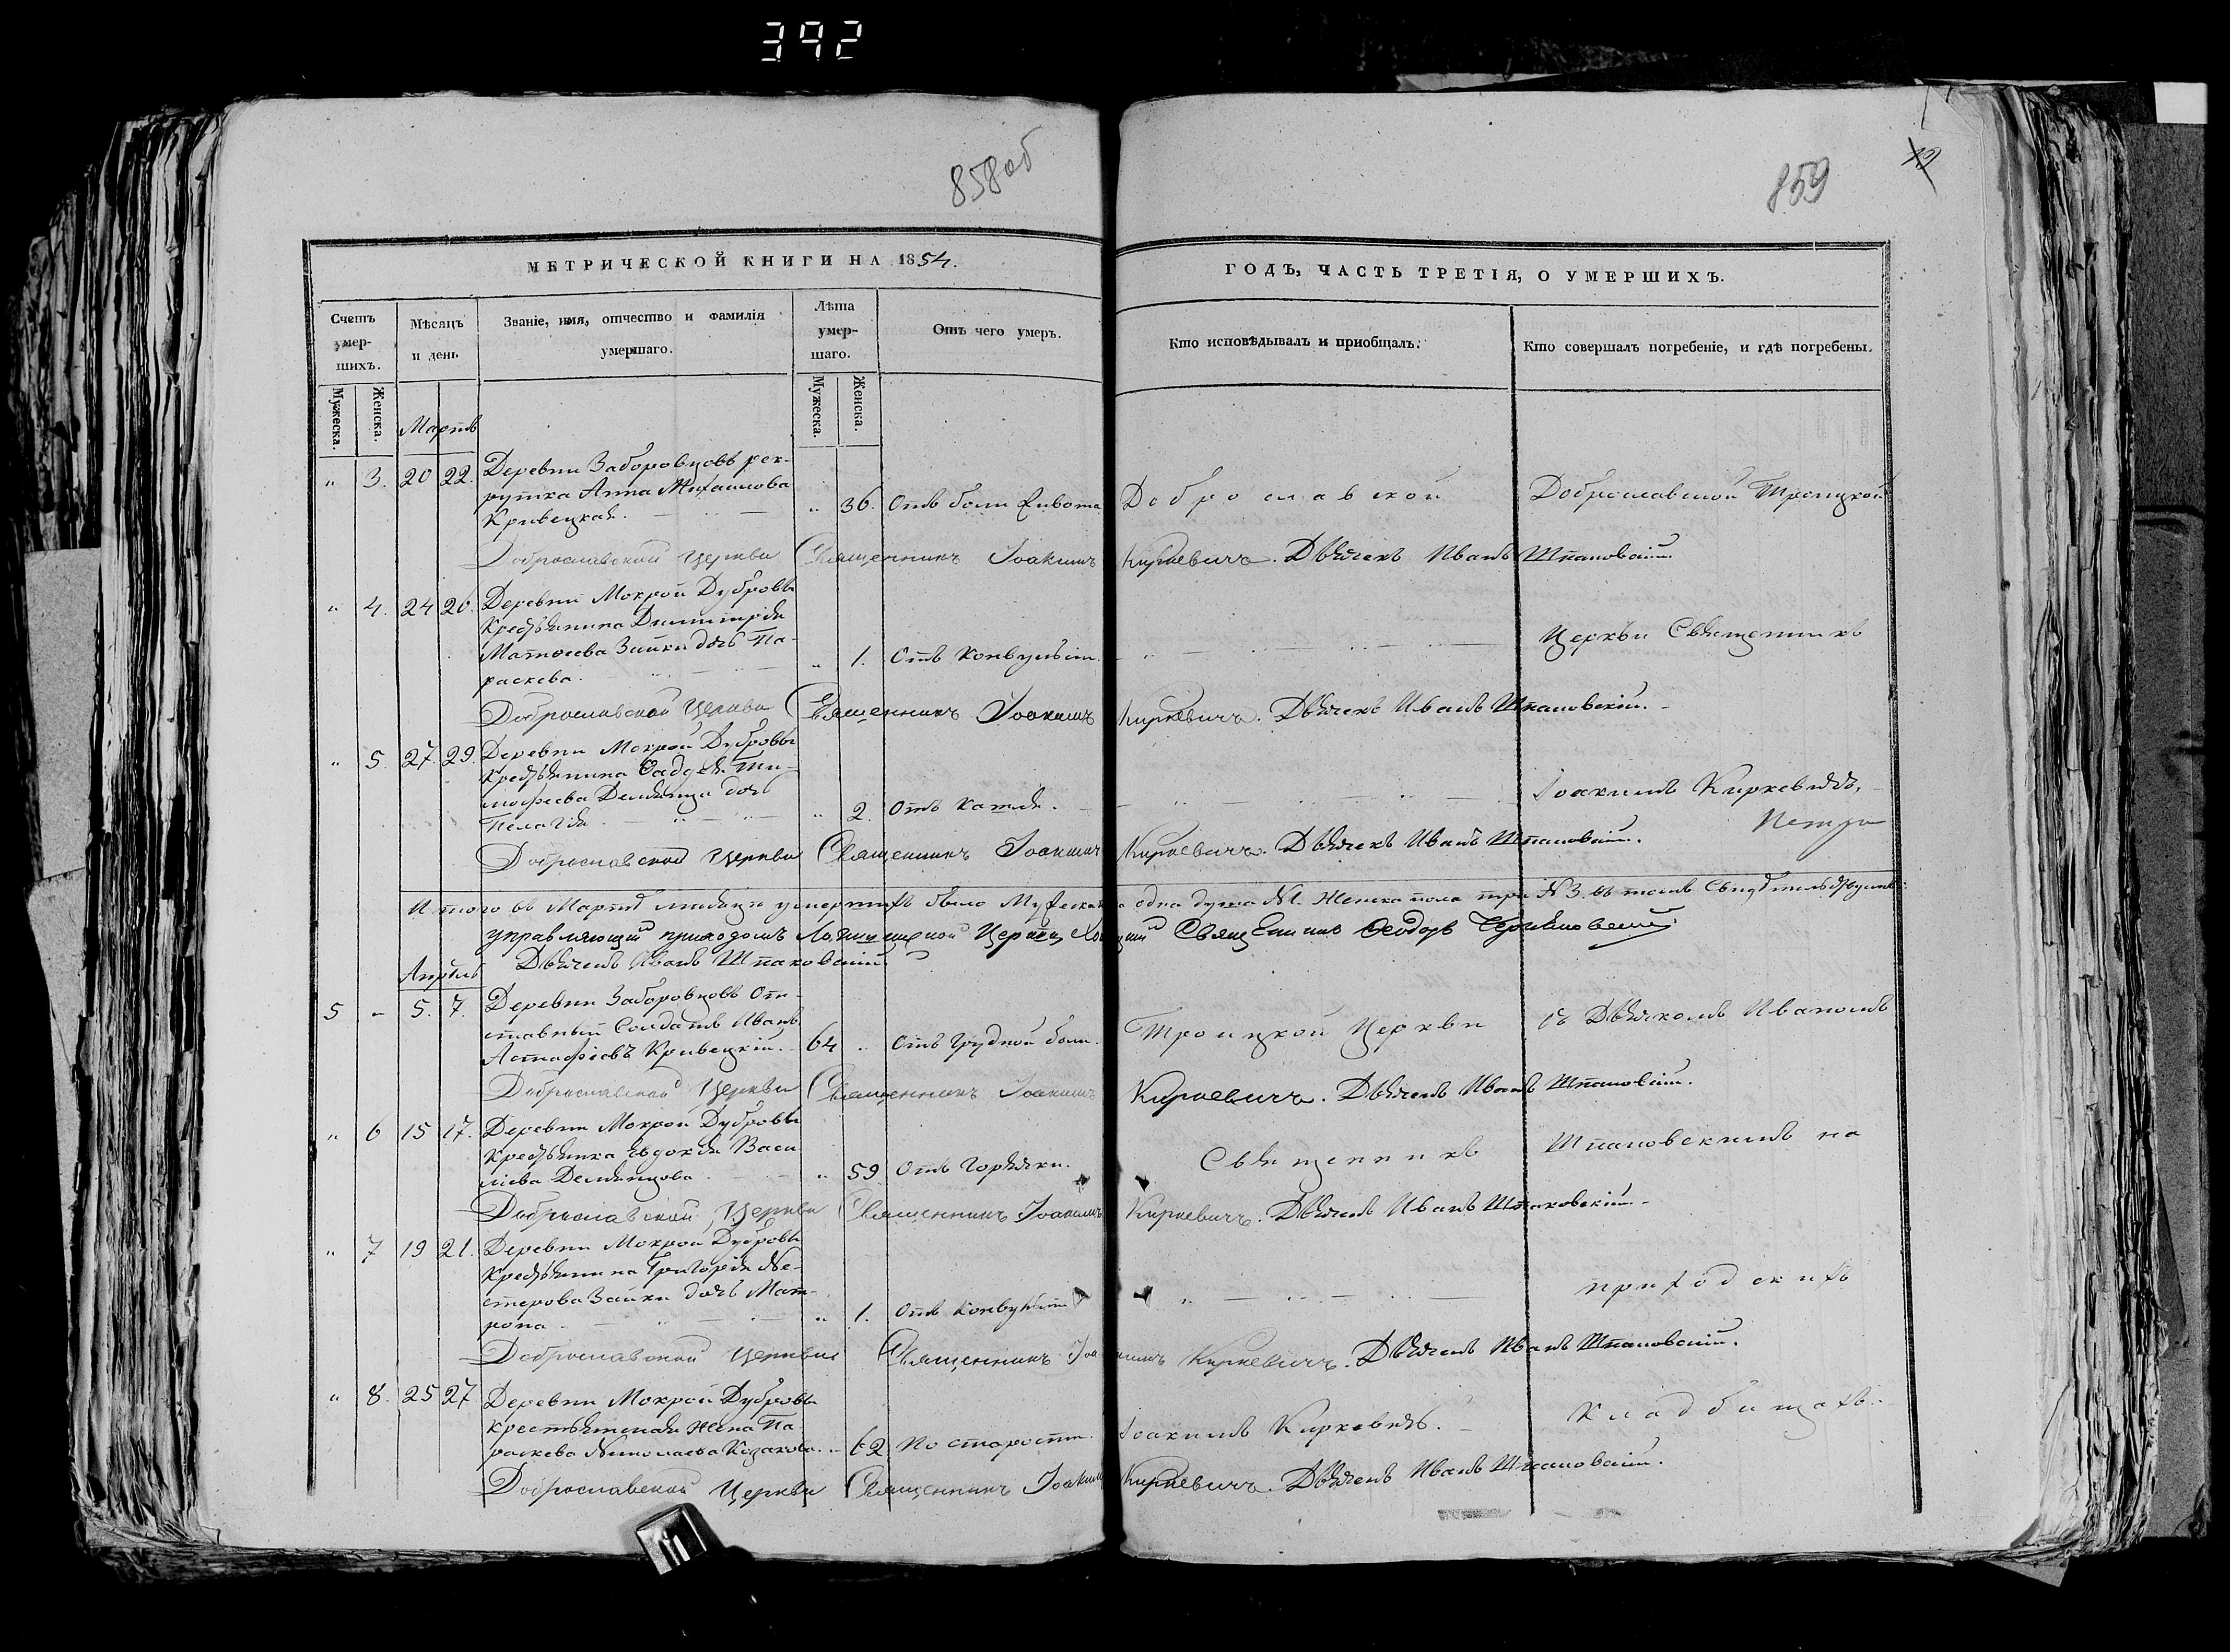 392
858об
859
19
МЕТРИЧЕСКОЙ КНИГИ НА 1854.
ГОДЪ, ЧАСТЬ ТРЕТІЯ, О УМЕРШИХЪ.
Счетъ умер-шихъ.
Мужеска.
Женска.
Мѣсяцъ и день
Званіе, имя, отчество и фамилія умершаго.
Лѣта умер-шаго.
Мужеска.
Женска.
Отъ чего умеръ.
Кто исповѣдывалъ и приобщалъ.
Кто совершалъ погребеніе, и гдѣ погребены.
Мартъ
" 3. 20 22. Деревни Заборовцовъ рек-
рутка Анна Михаилова
Кривецкая. " 36. Отъ боли живота Доброславской Доброславской Троицкой
Доброславской Церкви Священникъ Іоакимъ Киркевичъ. Дьячекъ Иванъ Шпаковскій.
" 4. 24 26. Деревни Мокрой Дубровы
Крестьянина Димитрія
Матѳеева Зайки дочь Па-
раскева. " 1. Отъ Конвульсіи. Церкви Священникъ
Доброславской Церкви Священникъ Іоакимъ Киркевичъ. Дьячекъ Иванъ Шпаковскій.
" 5. 27. 29. Деревни Мокрой Дубровы
Крестьянина Ѳаддея Ти-
мофеева дочь
Пелагія " 2. Отъ Кашля. Іоакимъ Киркевичъ,
Доброславской Церкви Священникъ Іоакимъ Киркевичъ. Дьячекъ Иванъ Шпаковскій.
Итого въ Мартѣ мѣсяцѣ умершихъ было Мужеска одна душа №1. Женска пола три №3. въ томъ Свидѣтельствуемъ:
управляющій приходомъ Церкви Священникъ Ѳеодоръ
Дьячекъ Иванъ Шпаковскій
Апрѣль
5 " 5. 7. Деревни Заборовцовъ От-
ставный Солдатъ Иванъ
Астафіевъ Кривецкій. 64 " Отъ Грудной боли. Троицкой Церкви съ Дьячкомъ Иваномъ
Доброславской Церкви Священникъ Іоакимъ Киркевичъ. Дьячекъ Иванъ Шпаковскій.
" 6 15 17. Деревни Мокрой Дубровы
Крестьянка Евдокія Васи
ліева " 59. Отъ Горячки. Священникъ Шпаковскимъ на
Доброславской Церкви Священникъ Іоакимъ Киркевичъ. Дьячекъ Иванъ Шпаковскій.
" 7 19 21. Деревни Мокрой Дубровы
Крестьянина Григорія Не-
стерова Зайки дочь Мат-
рона " 1. Отъ Конвульсіи приходскихъ
Доброславской Церкви Священникъ Іоакимъ Киркевичъ. Дьячекъ Иванъ Шпаковскій.
" 8. 25 27 Деревни Мокрой Дубровы
крестьянская жена Па-
раскева Николаева Козакова. " 62 По старости. Іоакимъ Киркевичъ. Кладбищахъ.
Доброславской Церкви Священникъ Іоакимъ Киркевичъ. Дьячекъ Иванъ Шпаковскій.